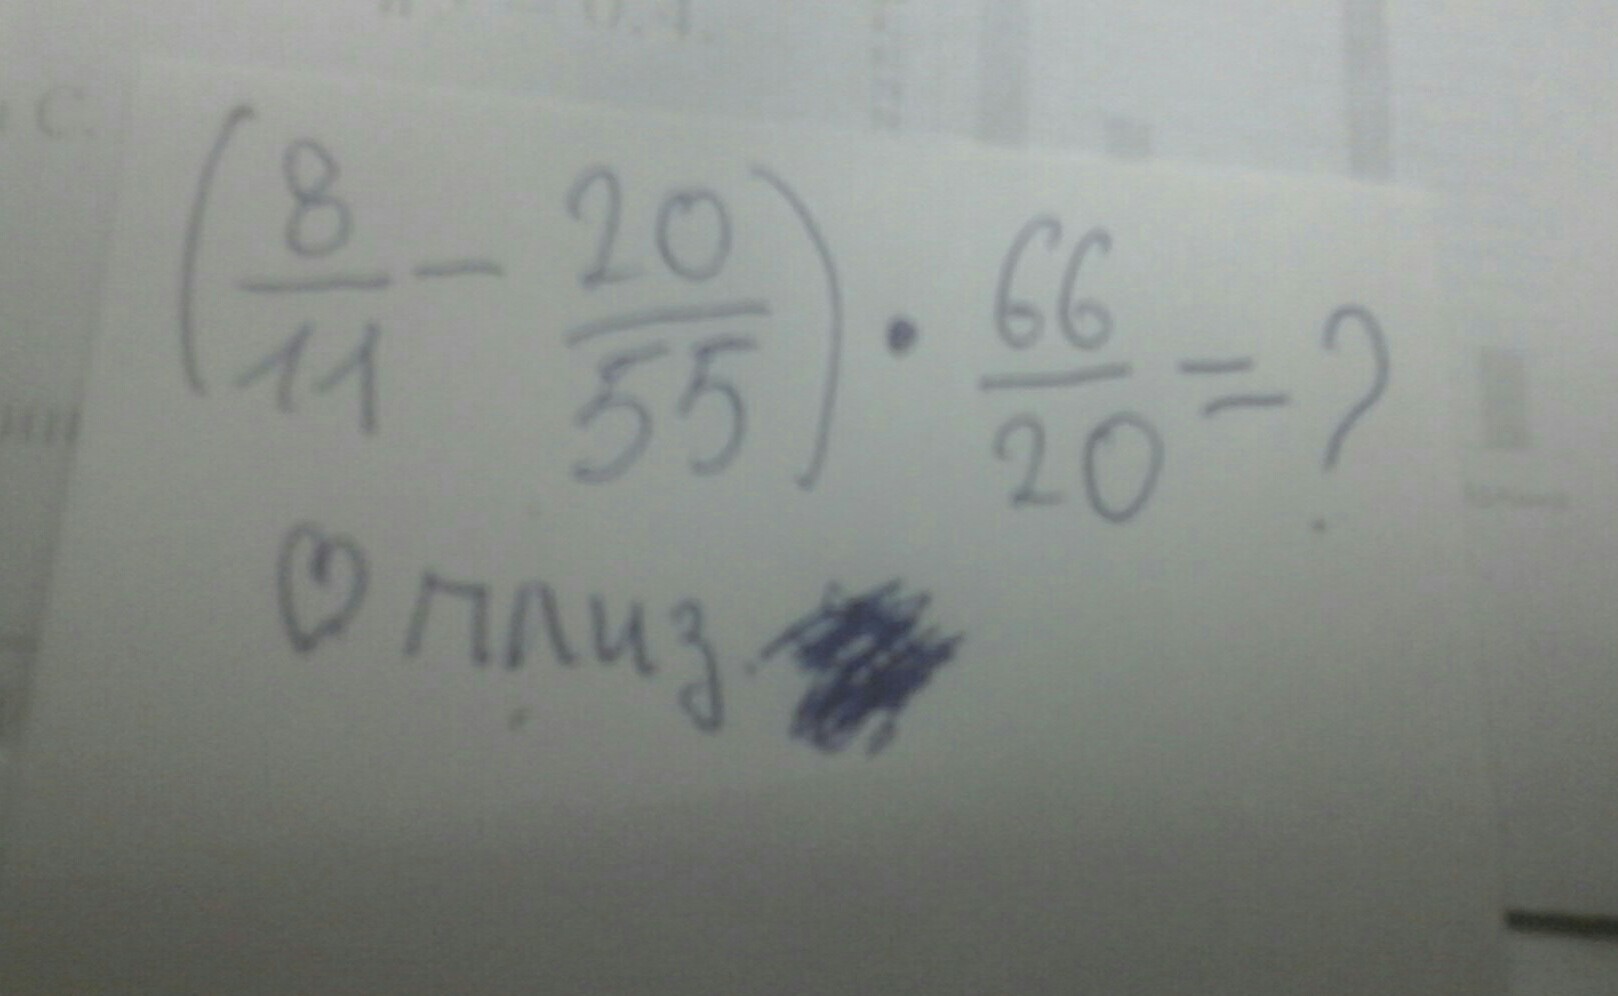 (8/11 - 20/55) · 66/20 = ?
♡ плиз